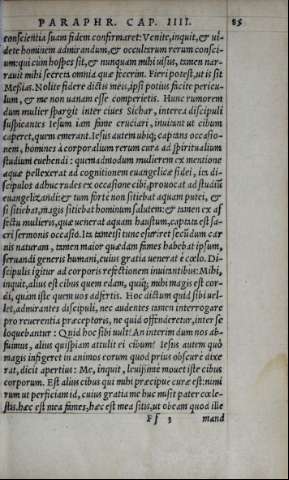 PARAPHR. CAP. IIII. 85
conscientia suam fidem confirmaret: Venite, inquit, & ui-
dete hominem admirandum, & occultarum rerum consci-
um: qui cùm hospes sit, & nunquam mihi uisus, tamen nar-
rauit mihi secreta omnia quæ fecerim. Fieri potest, ut is sit
Messias. Nolite fidere dictis meis, ipsi potius facite pericu-
lum, & me non uanam esse comperietis. Hunc rumorem
dum mulier spargit inter ciues Sichar, interea discipuli
suspicantes Iesum iam fame cruciari, inuitant ut cibum
caperet, quem emerant. Iesus autem ubiq; captans occasio-
nem, homines à corporalium rerum cura ad spiritualium
studium euehendi: quemadmodum mulierem ex mentione
aquæ pellexerat ad cognitionem euangelicæ fidei, ita di-
scipulos adhuc rudes ex occasione cibi, prouocat ad studiũ
euangelizandi: & tum fortè non sitiebat aquam putei, &
si sitiebat, magis sitiebat hominum salutem: & tamen ex af
fectu mulieris, quæ uenerat aquam haustum, captata est sa-
cri sermonis occasio. Ita tametsi tunc esuriret secũdum car
nis naturam, tamen maior quædam fames habebat ipsum,
seruandi generis humani, cuius gratia uenerat è cœlo. Di-
scipulis igitur ad corporis refectionem inuitantibus: Mihi,
inquit, alius est cibus quem edam, quiq; mihi magis est cor-
di, quàm iste quem uos adfertis. Hoc dictum quid sibi uel-
let, admirantes discipuli, nec audentes tamen interrogare
pro reuerentia præceptoris, ne quid offenderetur, inter se
loquebantur: Quid hoc sibi uult? An interim dum nos ab-
fuimus, alius quispiam attulit ei cibum? Iesus autem quò
magis infigeret in animos eorum quod prius obscurè dixe
rat, dicit apertius: Me, inquit, leuissimè mouet iste cibus
corporum. Est alius cibus qui mihi præcipue curæ est: nimi
rum ut perficiam id, cuius gratia me huc misit pater cœle-
stis. hæc est mea fames, hæc est mea sitis, ut obeam quod ille
Ff 3 mand